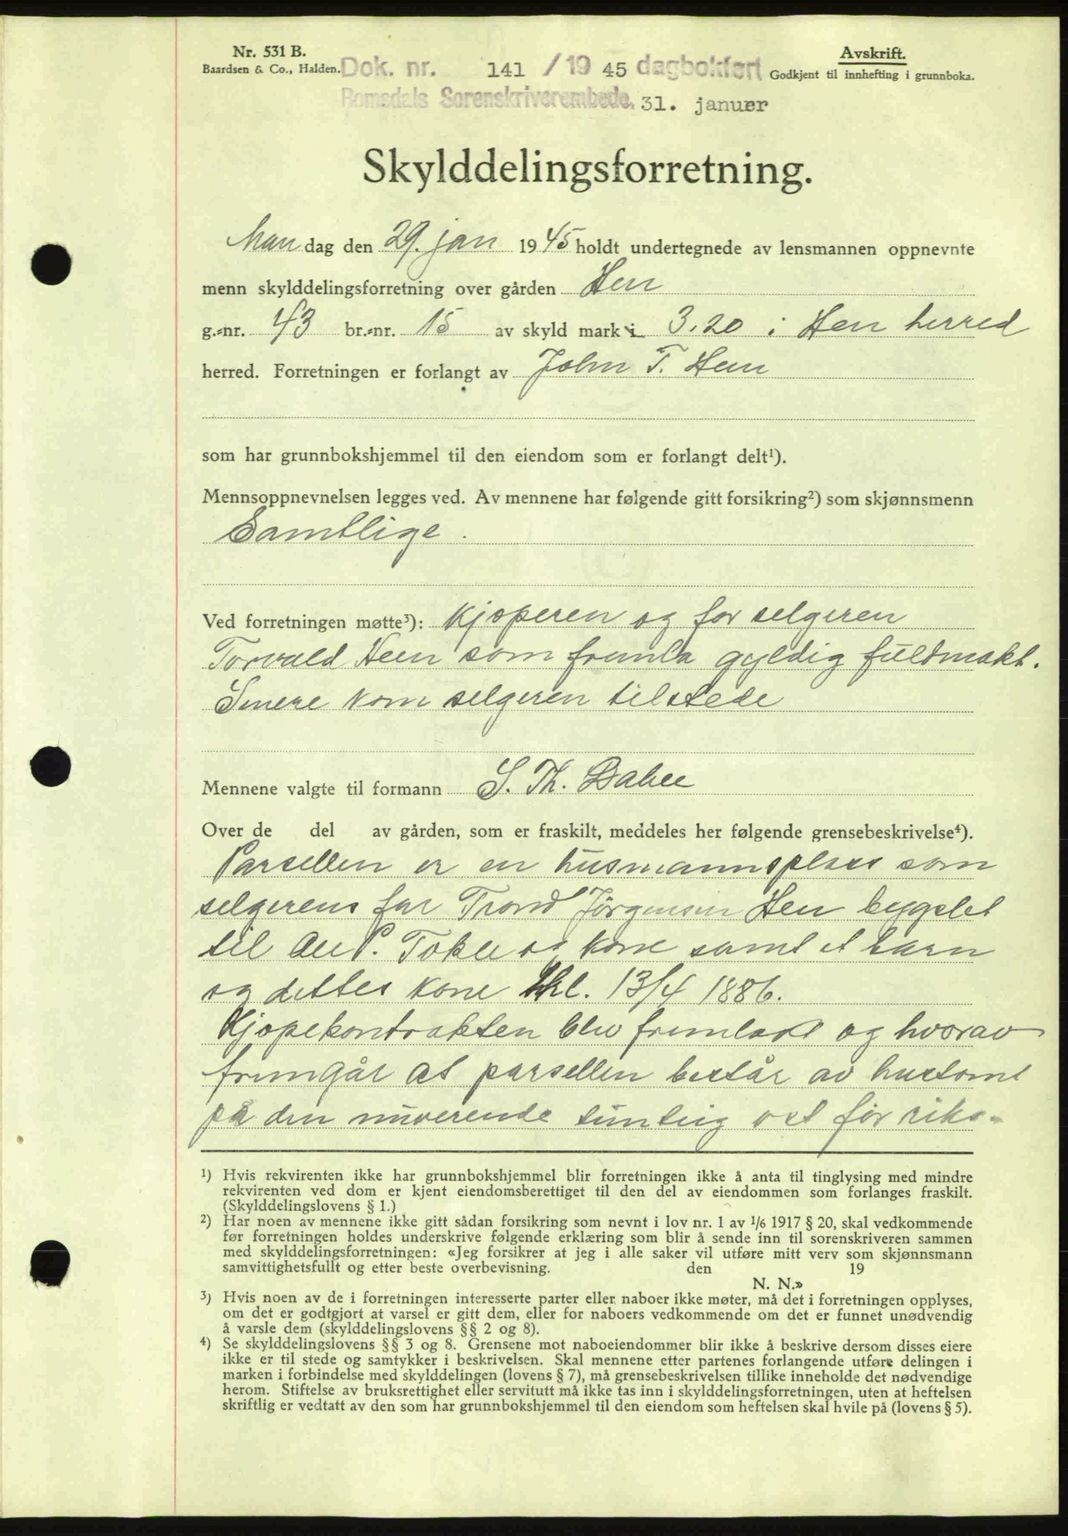 Nr. 531 B.
Baardsen & Co., Halden.
Avskrift.
Godkjent til innhefting i grunnboka.
Dok. nr. 141 /19 45 dagbokført
Romsdals Sorenskriverembede. 31. januar
Skylddelingsforretning.
Man dag den 29. jan 1945 holdt undertegnede av lensmannen oppnevnte
menn skylddelingsforretning over gården Hen
g.-nr. 43 br.-nr. 15 av skyld mark i 3.20 i Hen herred
herred. Forretningen er forlangt av John T. Hen
som har grunnbokshjemmel til den eiendom som er forlangt delt¹).
Mennsoppnevnelsen legges ved. Av mennene har følgende gitt forsikring²) som skjønnsmenn
Samtlige.
Ved forretningen møtte³): Kjøperen og for selgeren
Torvald Hen som framla gyldig fuldmakt.
Senere kom selgeren tilstede
Mennene valgte til formann S. Th. Dahle
Over de del av gården, som er fraskilt, meddeles her følgende grensebeskrivelse⁴).
Parsellen er en husmannsplass som
selgerens far Trond Jørgensen Hen bygslet
til P. Tokle og kone samt et barn
og dettes kone 13/4 1886.
Kjøpekontrakten blev fremlagt og hvorav
fremgår at parsellen består av hustomt
på den nuverende øst for riks-
¹) Hvis rekvirenten ikke har grunnbokshjemmel blir forretningen ikke å anta til tinglysing med mindre
rekvirenten ved dom er kjent eiendomsberettiget til den del av eiendommen som forlanges fraskilt.
(Skylddelingslovens § 1.)
²) Har noen av mennene ikke gitt sådan forsikring som nevnt i lov nr. 1 av 1/6 1917 § 20, skal vedkommende
før forretningen holdes underskrive følgende erklæring som blir å sende inn til sorenskriveren sammen
med skylddelingsforretningen: «Jeg forsikrer at jeg i alle saker vil utføre mitt verv som skjønnsmann
samvittighetsfullt og etter beste overbevisning. den 19
N. N.»
³) Hvis noen av de i forretningen interesserte parter eller naboer ikke møter, må det i forretningen opplyses,
om det er godtgjort at varsel er gitt dem, eller for naboers vedkommende om det er funnet unødvendig
å varsle dem (skylddelingslovens §§ 2 og 8).
⁴) Se skylddelingslovens §§ 3 og 8. Grensene mot naboeiendommer blir ikke å beskrive dersom disses eiere
ikke er til stede og samtykker i beskrivelsen. Skal mennene etter partenes forlangende utføre delingen i
marken i forbindelse med skylddelingen (lovens § 7), må grensebeskrivelsen tillike inneholde det nødvendige
herom. Stiftelse av bruksrettighet eller servitutt må ikke tas inn i skylddelingsforretningen, uten at heftelsen
skriftlig er vedtatt av den som har grunnbokshjemmel til den eiendom som heftelsen skal hvile på (lovens § 5).